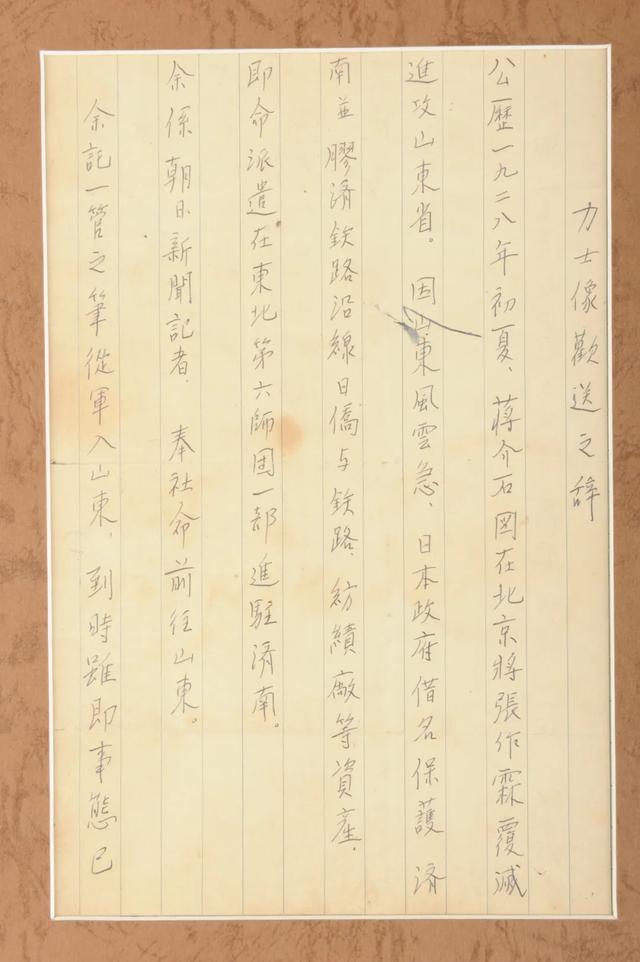 力士像歡送之辞
公歷一九二八年初夏、蔣介石図在北京將張作霖覆滅
進攻山東省。因山東風雲急、日本政府借名保護済
南並膠済鉄路沿線日僑与鉄路、紡績廠等資産、
即命派遣在東北第六師団一部進駐済南。
余係朝日新聞記者、奉社命前往山東。
余記一管之筆從軍入山東、到時雖即事態已